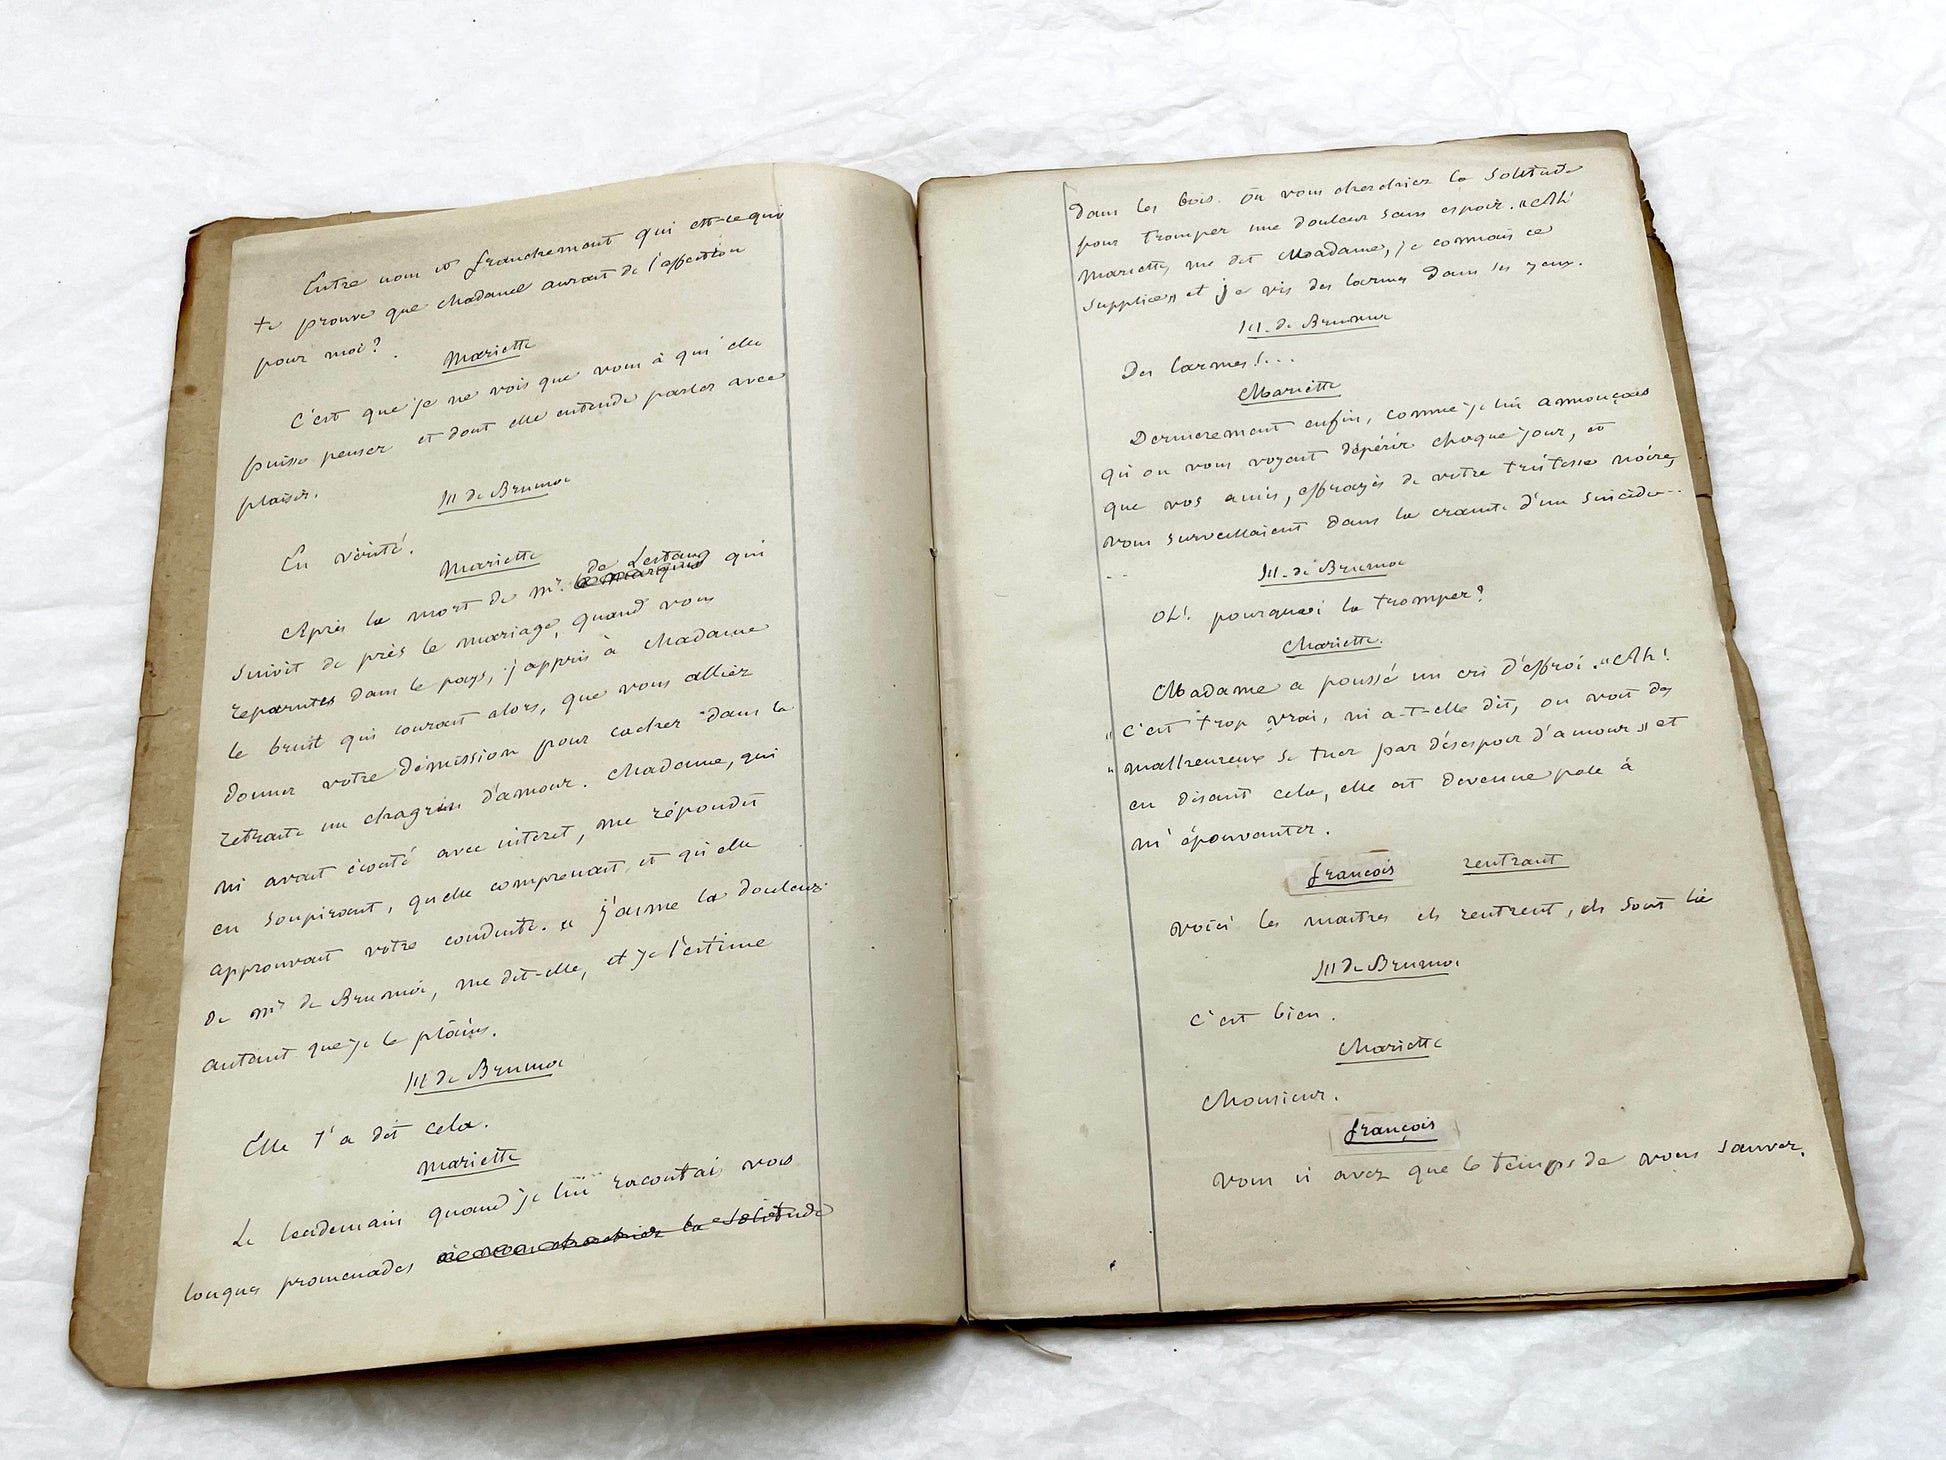 Entre nous et franchement qui est-ce qui
te prouve que Madame aurait de l'affection
pour moi?
Mariette
C'est que je ne vois que vous à qui elle
puisse penser et dont elle entende parler avec
plaisir.
M de Brumoi
En vérité.
Mariette
de Lestang
Après la mort de mr. le marquis qui
suivit de près le mariage, quand vous
reparutes dans le pays, j'appris à Madame
le bruit qui courait alors, que vous alliez
donner votre démission pour cacher dans la
retraite un chagrin d'amour. Madame, qui
m'avait écouté avec interet, me répondit
en soupirant, quelle comprenait et qu'elle
approuvait votre conduite. « j'aime la douleur
de mr de Brumoi, me dit-elle, et je l'estime
autant que je le plains.
M de Brumoi
Elle t'a dit cela.
Mariette
Le lendemain quand je lui racontai vos
longues promenades où vous cherchiez la solitude
dans les bois. où vous cherchiez la solitude
pour tromper une douleur sans espoir. « Ah!
Mariette, me dit Madame, je connais ce
supplice » et je vis des larmes dans ses yeux.
M. de Brumoi
Des larmes!...
Mariette
Dernierement enfin, comme je lui annonçais
qu'on vous voyait dépérir chaque jour, et
que vos amis, effrayés de votre tristesse noire,
vous surveillaient dans la crainte d'un suicide..
..
M. de Brumoi
Oh! pourquoi la tromper?
Mariette.
Madame a poussé un cri d'effroi. « Ah!
« C'est trop vrai, m'a-t-elle dit, on voit des
« malheureux se tuer par désespoir d'amour » et
en disant cela, elle est devenue pale à
m'épouvanter.
françois rentrant
Voici les maitres ils rentrent, ils sont là
M de Brumoi
C'est bien.
Mariette
Monsieur.
françois
Vous n'avez que le temps de vous sauver.